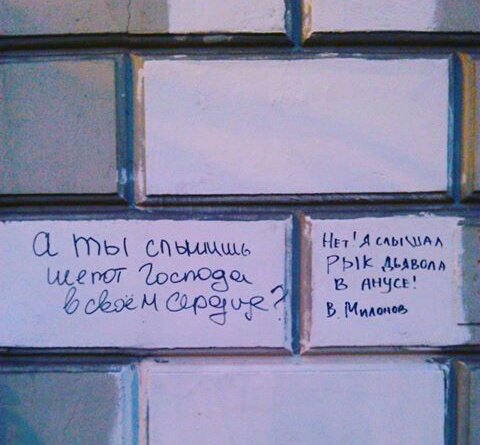 а ты слышишь
шепот Господа
в своём сердце?
Нет! Я слышал
рык дьявола
в анусе!
В. Милонов